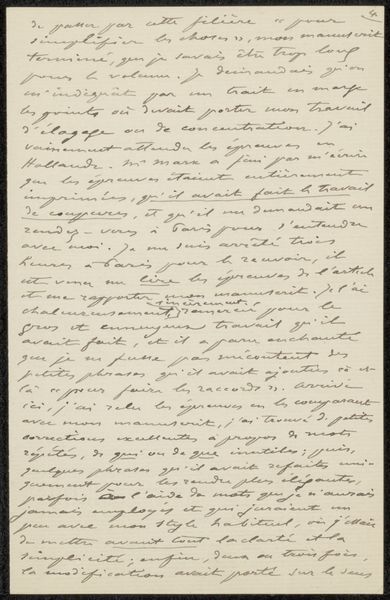 4
de passer par cette filière « pour
simplifier les choses », mon manuscrit
terminé, que je savais être trop long
pour le volume. Je demandais qu'on
m'indiquât par un trait en marge
les points où devait porter mon travail
d'élagage ou de concentration. J'ai
vainement attendu les épreuves en
Hollande. Mr Mark a fini par m'écrire
que les épreuves étaient entièrement
imprimées, qu'il avait fait le travail
de coupures, et qu'il me demandait un
rendez-vous à Paris pour s'entendre
avec moi. Je me suis arrêté trois
heures à Paris pour le recevoir, il
est venu me lire les épreuves de l'article
et me rapporter mon manuscrit. Je l'ai
chaleureusement, sincèrement, remercié pour le
gros et ennuyeux travail qu'il
avait fait, et il a paru enchanté
que je ne fusse pas mécontent des
petites phrases qu'il avait ajoutées çà et
là « pour faire les raccords ». Arrivé
ici, j'ai relu les épreuves en les comparant
avec mon manuscrit, j'ai trouvé de petites
corrections excellentes à propos de mots
répétés, de qui ou de que inutiles; puis,
quelques phrases qu'il avait refaites uni-
quement pour les rendre plus élégantes,
parfois à l'aide de mots que je n'aurais
jamais employés et qui juraient un
peu avec mon style habituel, où j'essaie
de mettre avant tout la clarté et la
simplicité; enfin, deux ou trois fois,
la modification avait porté sur le sens